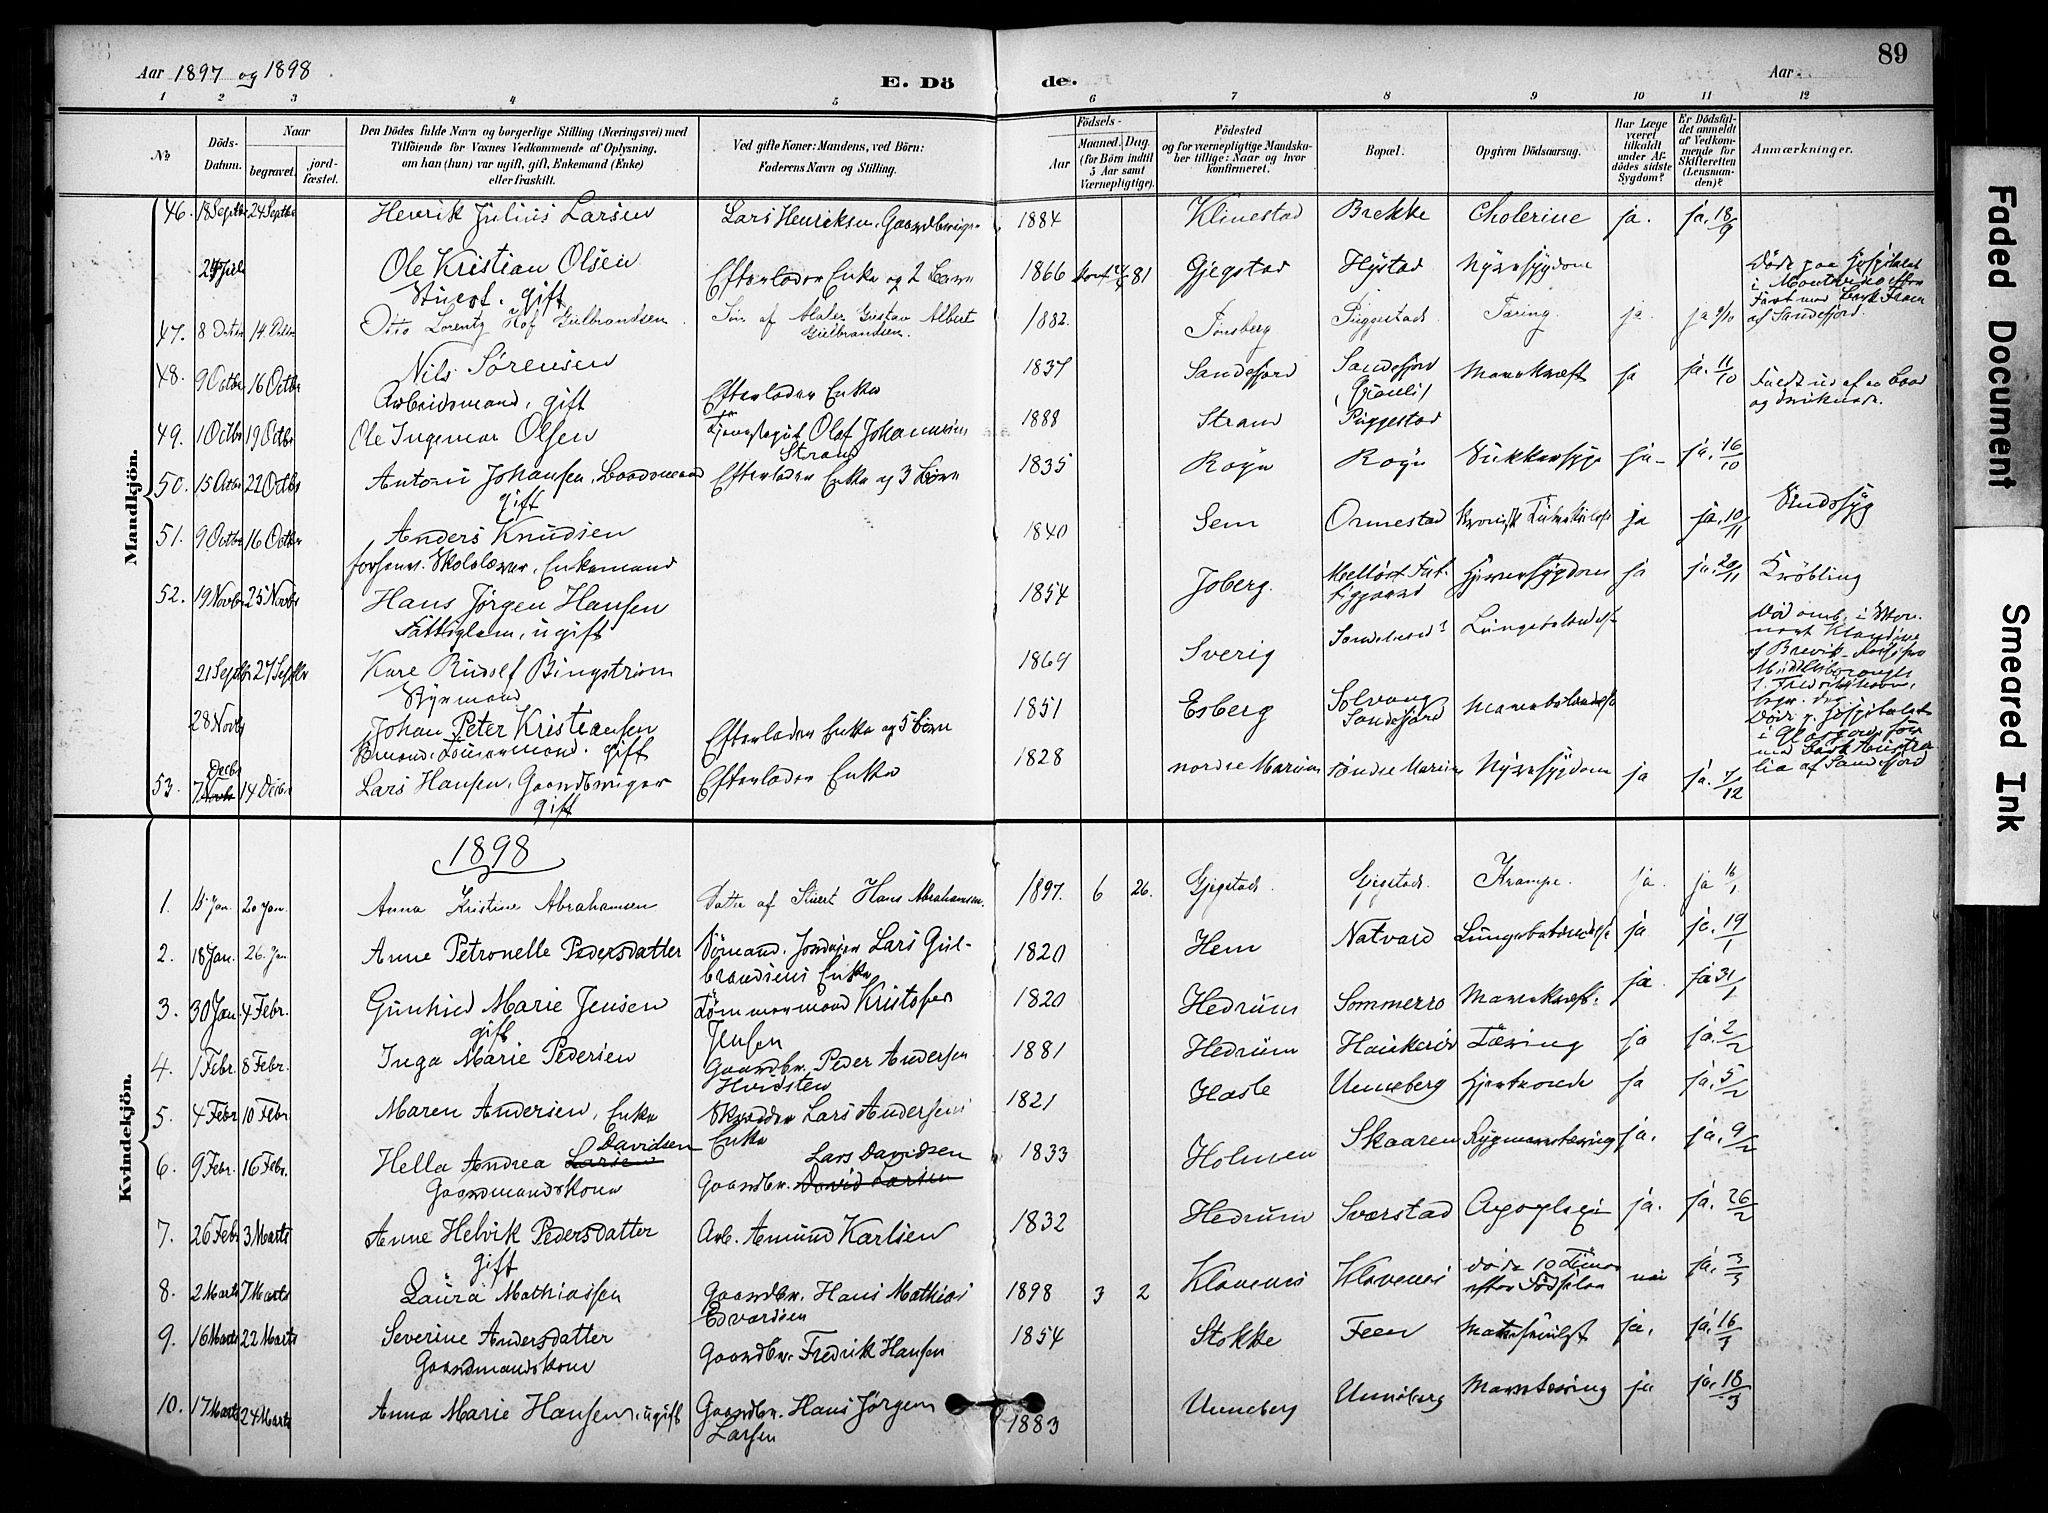 89
Aar 1897 og 1898
E. Dö de.
Aar
1 2 3 4 5 6 7 8 9 10 11 12
No
Döds-Datum.
Naar
begravet.
jord-fæstet.
Den Dödes fulde Navn og borgerlige Stilling (Næringsvei) med
Tilföiende for Voxnes Vedkommende af Oplysning,
om han (hun) var ugift, gift, Enkemand (Enke)
eller fraskilt.
Ved gifte Koner: Mandens, ved Börn:
Faderens Navn og Stilling.
Födsels-
Aar
Maaned. Dag.
(for Börn indtil
5 Aar samt
Værnepligtige).
Födested
og for værnepligtige Mandska-
ber tillige: Naar og hvor
konfirmeret.
Bopæl.
Opgiven Dödsaarsag.
Har Læge
været
tilkaldt
under Af-
dödes sidste
Sygdom?
Er Dödsfal-
det anmeldt
af Vedkom-
mende for
Skifteretten
(Lensman-
den)?
Anmærkninger.
Mandkjön.
46. 18 Septbr 24 Septbr Henrik Julius Larsen Lars Henriksen, Gaardbruger 1884 Klinestad Brekke Cholerine ja. ja. 18/9
24 Juli Ole Kristian Olsen Efterlader Enke og 2 Børn 1866 81 Gjegstad Hystad Nyresygdom Døde paa Hospitalet
Stuert. gift i Montevideo efter
47. 8 14 Otto Lorentz Hof Gulbrandsen Søn af Maler Gustav Albert 1882. Tønsberg Puggestad Tæring. ja. ja 9/10 af Sandefjord.
Gulbrandsen.
48. 9 Octbr 16 Octbr Nils Sørensen 1837 Sandefjord Sandefjord Mavekræft ja ja. 11/10
Arbeidsmand, gift Efterlader Enke Faldt ud af en Baad
og druknede.
49. 1 Octbr 19 Octbr Ole Ingemar Olsen Olaf Johannesen 1888 Strand Puggestad
Strand
50. 15 Octbr 22 Octbr Anton Johansen, Baadsmand Efterlader Enke og 3 Børn 1835 Royn Royn Sukkersyge ja- ja. 16/10
gift
51. 9 Octbr 16 Octbr Anders Knudsen 1840 Sem Ormestad ja ja. 10/11 Sindssyg
forhenv. Skolelærer, Enkemand
52. 19 Novbr 25 Novbr Hans Jørgen Hansen 1854 Joberg. Hjernesygdom ja ja. 20/11 Krøbling
Fattiglem, ugift
21 Septbr 27 Septbr Kare Rudolf Bingstrøm 1869 Sverig Lungebetændelse
Styrmand
28 Novbr Johan Peter Kristiansen Efterlader Enke og 5 Børn 1851 Esberg Solvang Mavebetændelse
gift Sandefjord
53. 7 Decbr 14 Decbr Lars Hansen, Gaardbruger Efterlader Enke 1828 nordre Marum søndre Marum Nyresygdom ja ja. 7/12 lia af Sandefjord
gift
Kvindekjön.
1898
1. 15 Jan. 20 Jan. Anna Kristine Abrahamsen Datter af Stuert Hans Abrahamsen. 1897. 6 26. Gjegstad. Gjegstad. Krampe. ja. ja 16/1
2. 18 Jan. 26. Jan. Anne Petronelle Pedersdatter Sømand. Lars Gul- 1820 Hem Natvard Lungebetændelse ja. ja. 19/1
brandsens Enke
3. 30 Jan. 4 Febr. Gunhild Marie Jensen Tømmermand Kristofer 1820 Hedrum Sommerro Mavekræft. ja. ja 31/1
gift Jensen
4. 1 Febr. 8 Febr. Inga Marie Pedersen Gaardbr. Peder Andersen 1881 Hedrum Haukerød Tæring ja ja. 2/2
Hvidsten
5. 4 Febr 10 Febr Maren Andersen, Enke Skrædder Lars Andersens 1821 Hasle Unneberg ja ja. 5/2
Enke
6. 9 Febr. 16 Febr. Hella Andrea Larsen Davidsen Gaardbr. David Larsen Lars Davidsen 1833 Holmen Skaaren Rygmarvstæring ja. ja. 9/2
Gaardmandskone
7. 26 Febr 3 Marts Anne Helvik Pedersdatter Arb. Amund Karlsen 1832 Hedrum Sværstad Apoplexi ja. ja. 26/2
gift
8. 2 Marts 7 Marts Laura Mathiassen Gaardbr. Hans Mathias 1898 3 2 Klavenes Klavenes døde 10 Timer nei ja. 3/3
Edvardsen efter Fødselen
9. 16 Marts 22 Marts Severine Andersdatter Gaardbr. Fredrik Hansen 1854 Stokke Feen ja. ja. 16/3
Gaardmandskone
10. 17 Marts 24 Marts Anna Marie Hansen, ugift Gaardbr. Hans Jørgen 1883 Unneberg Unneberg Mavetæring ja ja. 18/3
Larsen
Faded Document
Smeared Ink